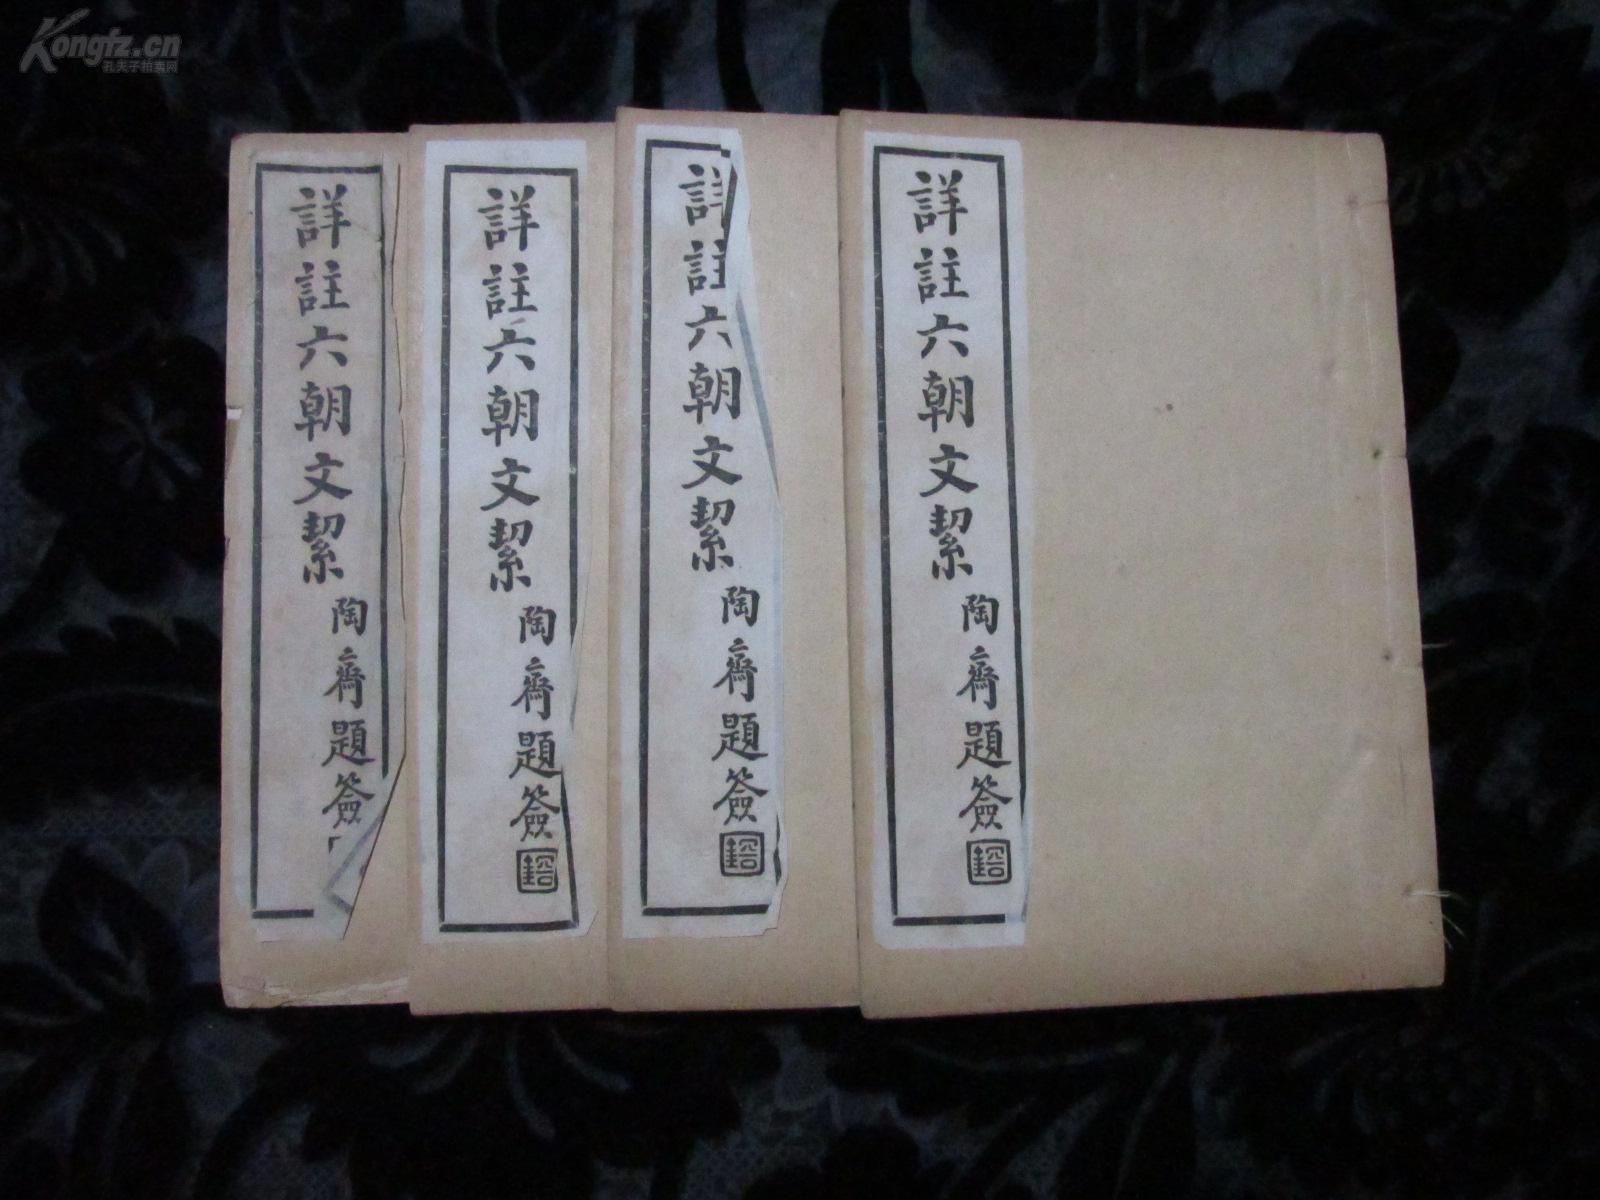 Kongfz.cn
孔夫子拍卖网
詳註六朝文絜
陶齋題簽
詳註六朝文絜
陶齋題簽
詳註六朝文絜
陶齋題簽
詳註六朝文絜
陶齋題簽